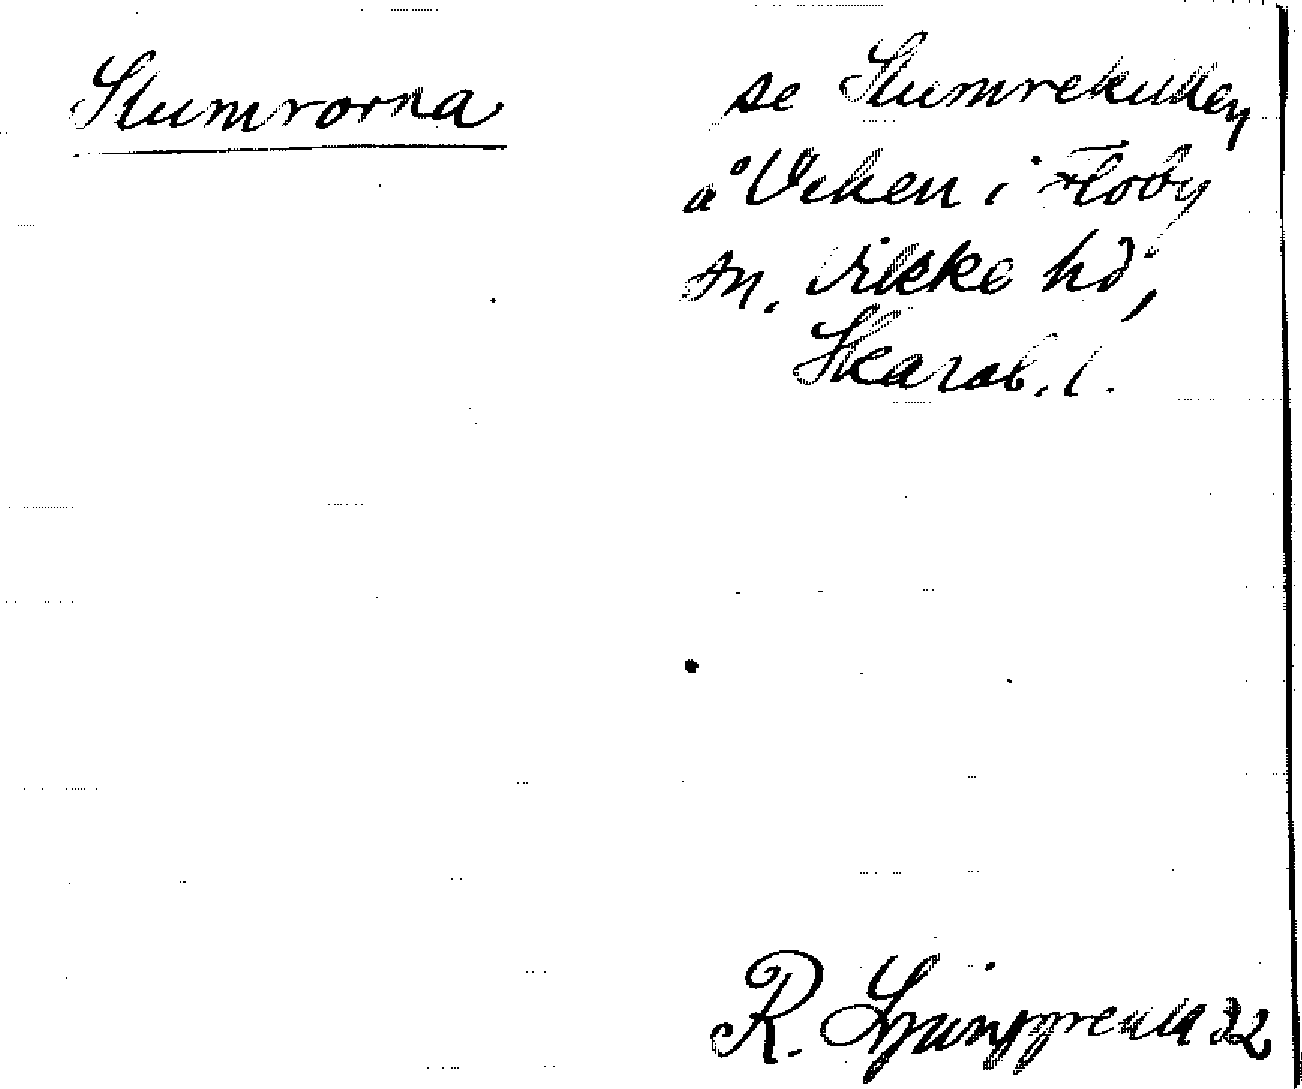 Slumrorna
se Slumrekullen
å Veken i Floby
sn. Vilske hd,
Skarab. l.
R. Ljunggren 1932